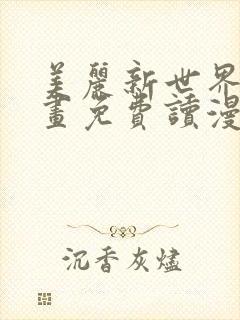 美麗新世界
畫免費讀漫
沉香灰燼